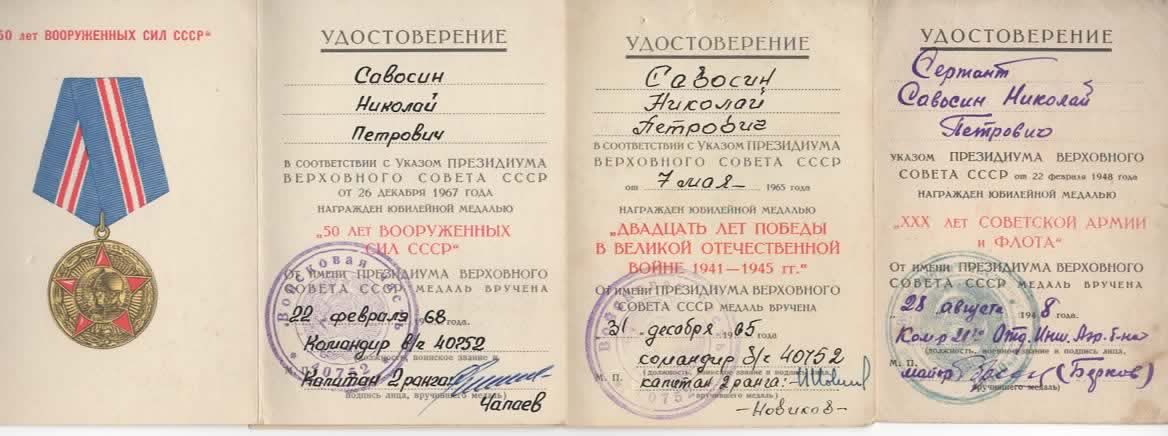 50 лет ВООРУЖЕННЫХ СИЛ СССР"
УДОСТОВЕРЕНИЕ
Савосин
Николай
Петрович
В СООТВЕТСТВИИ С УКАЗОМ ПРЕЗИДИУМА
ВЕРХОВНОГО СОВЕТА СССР
ОТ 26 ДЕКАБРЯ 1967 ГОДА
НАГРАЖДЕН ЮБИЛЕЙНОЙ МЕДАЛЬЮ
„50 ЛЕТ ВООРУЖЕННЫХ
СИЛ СССР“
ОТ ИМЕНИ ПРЕЗИДИУМА ВЕРХОВНОГО
СОВЕТА СССР МЕДАЛЬ ВРУЧЕНА
22 февраля 1968 года.
Командир в/ч 40752
(должность, воинское звание и
Капитан 2 ранга:
М. П.
подпись лица, вручившего медаль)
Чапаев
Войсковая часть
40752
УДОСТОВЕРЕНИЕ
Савосин
Николай
Петрович
В СООТВЕТСТВИИ С УКАЗОМ ПРЕЗИДИУМА
ВЕРХОВНОГО СОВЕТА СССР
от 7 мая 1965 года
НАГРАЖДЕН ЮБИЛЕЙНОЙ МЕДАЛЬЮ
„ДВАДЦАТЬ ЛЕТ ПОБЕДЫ
В ВЕЛИКОЙ ОТЕЧЕСТВЕННОЙ
ВОЙНЕ 1941—1945 гг.“
ОТ ИМЕНИ ПРЕЗИДИУМА ВЕРХОВНОГО
СОВЕТА СССР МЕДАЛЬ ВРУЧЕНА
31 декабря 1965 года
командир в/ч 40752
(должность, воинское звание и подпись
М. П. капитан 2 ранга:
вручившего медаль)
-Новиков-
УДОСТОВЕРЕНИЕ
Сержант
Савосин Николай
Петрович
УКАЗОМ ПРЕЗИДИУМА ВЕРХОВНОГО
СОВЕТА СССР от 22 февраля 1948 года
НАГРАЖДЕН ЮБИЛЕЙНОЙ МЕДАЛЬЮ
„XXX ЛЕТ СОВЕТСКОЙ АРМИИ
и ФЛОТА“
ОТ ИМЕНИ ПРЕЗИДИУМА ВЕРХОВНОГО
СОВЕТА СССР МЕДАЛЬ ВРУЧЕНА
28 августа 1948 года.
Ком-р Отд. Инж. Аэр. б-на
(должность, военное звание и подпись лица,
М. П. майор (Бурков)
вручившего медаль)